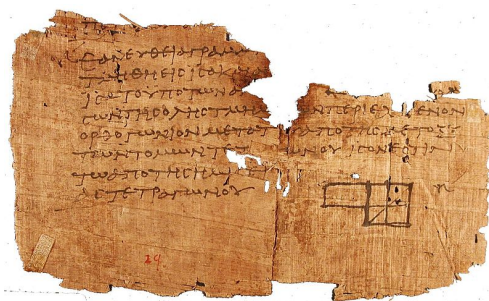 ΕΑΝΕΥΘΕΙΑΓΡΑΜ
ΤΜΗΘΗΕΙϹΙϹΑΚΑΙ
ΙϹΑΤΟΥΠΟΤΩΝΑ
ϹΩΝΤΗϹΟΛΗϹΤΜΗ ΩΝΠΕΡΙΕΧΟΜΕΝΟΝ
ΟΡΘΟΓΩΝΙΟΝΜΕΤΑΤΟΥ ΑΠΟΤΗϹΜΕΤΟΞΥ
ΤΩΝΤΟΜΩΝΤΕΤ ΓΩΝΟΥΙϹΟΝΕϹΤΙΝ
ΤΩΑΠΟΤΗϹΗΜΙϹΕΙ
ΑϹΤΕΤΡΑΓΩΝΟΥ
29